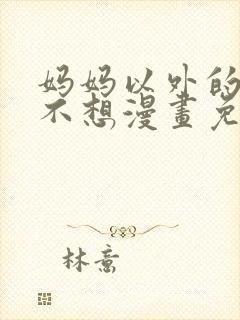 妈妈以外的
不想漫畫免
林意